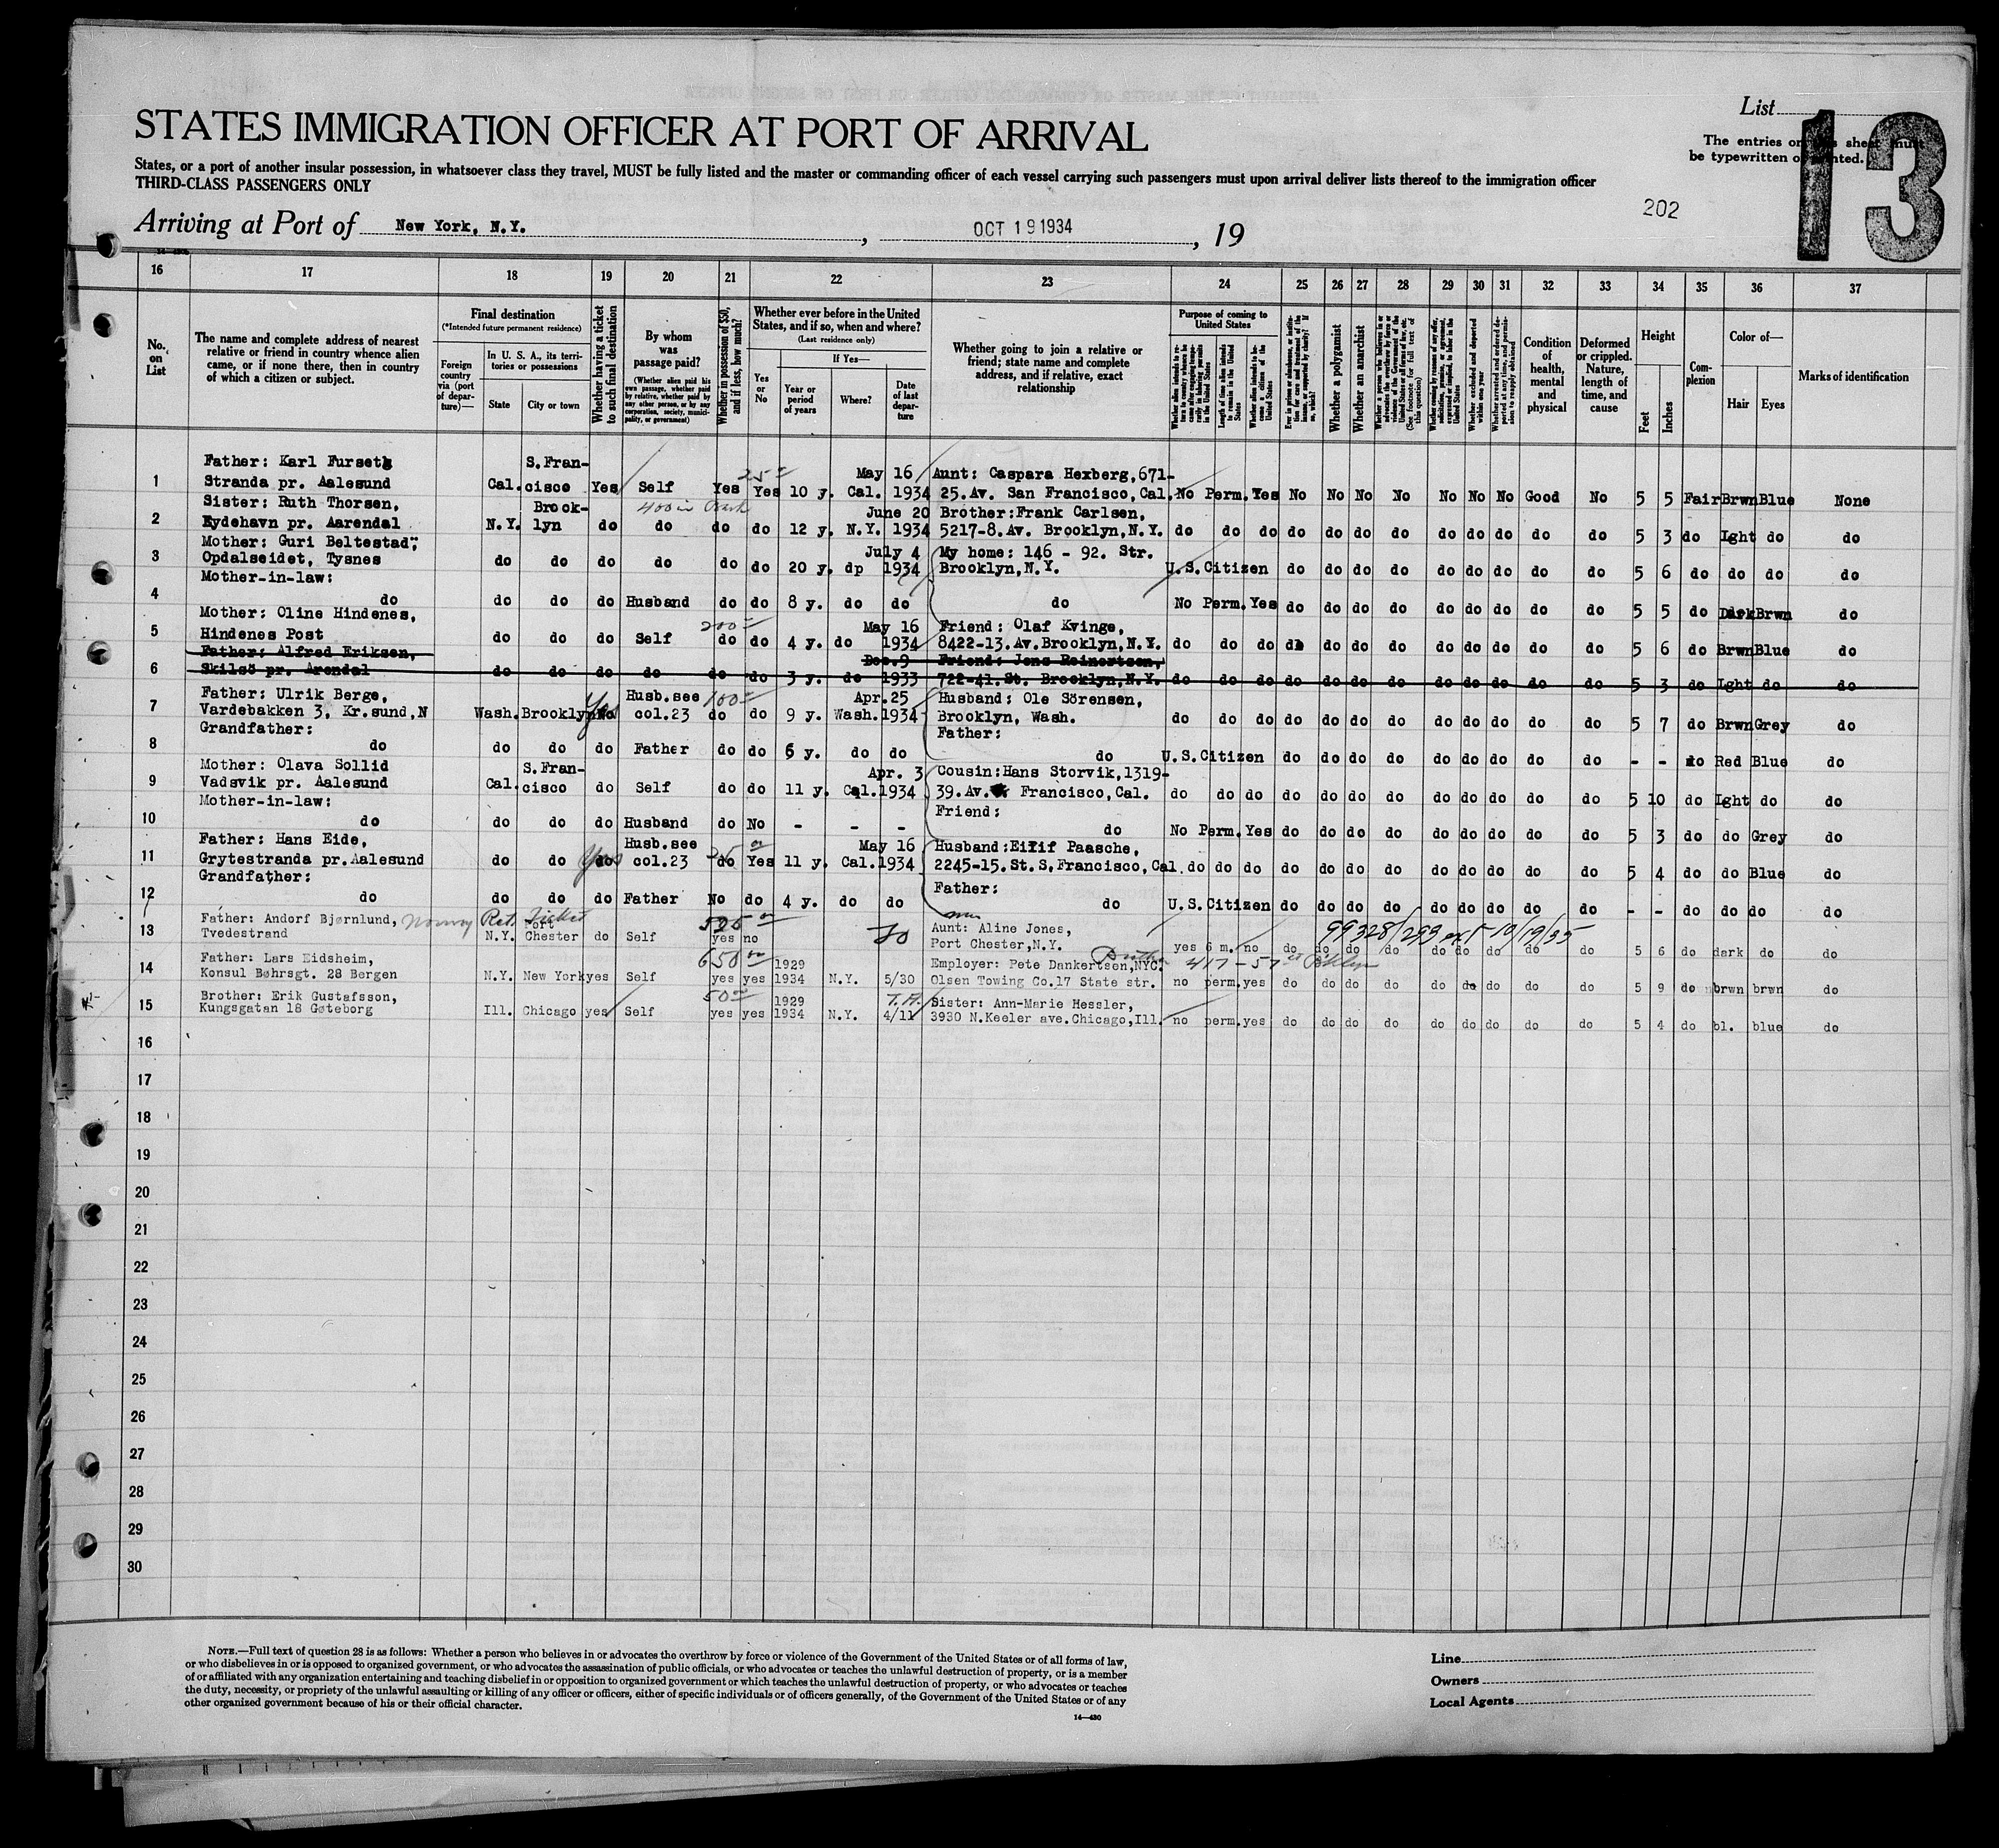 List
13
STATES IMMIGRATION OFFICER AT PORT OF ARRIVAL
The entries on this sheet must
be typewritten or printed.
States, or a port of another insular possession, in whatsoever class they travel, MUST be fully listed and the master or commanding officer of each vessel carrying such passengers must upon arrival deliver lists thereof to the immigration officer
THIRD-CLASS PASSENGERS ONLY
202
Arriving at Port of New York, N.Y. , OCT 19 1934 , 19
16 17 18 19 20 21 22 23 24 25 26 27 28 29 30 31 32 33 34 35 36 37
No. on List
The name and complete address of nearest relative or friend in country whence alien came, or if none there, then in country of which a citizen or subject.
Final destination
(*Intended future permanent residence)
Foreign country via (port of departure)—
In U. S. A., its territories or possessions
State
City or town
Whether having a ticket to such final destination
By whom was passage paid?
(Whether alien paid his own passage, whether paid by relative, whether paid by any other person, or by any corporation, society, municipality, or government)
Whether in possession of $50, and if less, how much?
Whether ever before in the United States, and if so, when and where?
(Last residence only)
Yes or No
If Yes—
Year or period of years
Where?
Date of last departure
Whether going to join a relative or friend; state name and complete address, and if relative, exact relationship
Purpose of coming to United States
Whether alien intends to return to country whence he came after engaging temporarily in laboring pursuits in the United States
Length of time alien intends to remain in the United States
Whether alien intends to become a citizen of the United States
Whether a polygamist
Whether an anarchist
Whether a person who believes in or advocates the overthrow by force or violence of the Government of the United States or all forms of law, etc. (See footnote for full text of this question)
Whether excluded and deported within one year
Condition of health, mental and physical
Deformed or crippled. Nature, length of time, and cause
Height
Feet
Inches
Complexion
Color of—
Hair
Eyes
Marks of identification
Father: Karl Furseth S.Fran- 25 May 16 Aunt: Caspara Hexberg,671-
1 Stranda pr. Aalesund Cal. cisco Yes Self Yes Yes 10 y. Cal. 1934 25.Av. San Francisco,Cal. No Perm. Yes No No No No No No No Good No 5 5 Fair Brwn Blue None
Sister: Ruth Thorsen, Brook- 400 in June 20 Brother:Frank Carlsen,
2 Eydehavn pr. Aarendal N.Y. lyn do do do do 12 y. N.Y. 1934 5217-8.Av. Brooklyn,N.Y. do do do do do do do do do do do do 5 3 do lght do do
Mother: Guri Beltestad, July 4 My home: 146 - 92. Str.
3 Opdalseidet, Tysnes do do do do do do 20 y. dp 1934 Brooklyn,N.Y. U.S.Citizen do do do do do do do do do 5 6 do do do do
Mother-in-law:
4 do do do do Husband do do 8 y. do do do No Perm. Yes do do do do do do do do do 5 5 do Dark Brwn do
Mother: Oline Hindenes, 200 May 16 Friend: Olaf Kvinge,
5 Hindenes Post do do do Self do do 4 y. do 1934 8422-13.Av.Brooklyn,N.Y. do do do do do do do do do do do do 5 6 do Brwn Blue do
Father: Alfred Eriksen, Dec.9 Friend: Jens Reinertsen,
6 Skilsö pr. Arendal do do do do do do 3 y. do 1933 722-41.St. Brooklyn,N.Y. do do do do do do do do do do do do 5 3 do lght do do
Father: Ulrik Berge, Yes Husb.see 100 Apr.25 Husband: Ole Sörensen,
7 Vardebakken 3, Kr.sund,N Wash. Brooklyn No col.23 do do 9 y. Wash. 1934 Brooklyn, Wash. do do do do do do do do do do do do 5 7 do Brwn Grey do
Grandfather: Father:
8 do do do do Father do do 6 y. do do do U.S.Citizen do do do do do do do do do - - do Red Blue do
Mother: Olava Sollid S.Fran- Apr. 3 Cousin:Hans Storvik,1319-
9 Vadsvik pr. Aalesund Cal. cisco do Self do do 11 y. Cal. 1934 39.Av. Francisco,Cal. do do do do do do do do do do do do 5 10 do lght do do
Mother-in-law: Friend:
10 do do do do Husband do No - - - do No Perm. Yes do do do do do do do do do 5 3 do do Grey do
Father: Hans Eide, Yes Husb.see 25 May 16 Husband:Eilif Paasche,
11 Grytestranda pr.Aalesund do do do col.23 do Yes 11 y. Cal. 1934 2245-15.St.S.Francisco,Cal. do do do do do do do do do do do do 5 4 do do Blue do
Grandfather: Father:
12 do do do do Father No do 4 y. do do do U.S.Citizen do do do do do do do do do - - do do do do
Father: Andorf Bjørnlund, Norway Ret. Ticket Port Aunt: Aline Jones, 99328/293 ext 10/19/35
13 Tvedestrand N.Y. Chester do Self yes no Port Chester,N.Y. yes 6 m. no do do do do do do do do do 5 6 do dark do do
Father: Lars Eidsheim, 650 1929 Employer: Pete Dankertsen,NYC. 417 - 57
14 Konsul Bøhrsgt. 28 Bergen N.Y. New York yes Self yes yes 1934 N.Y. 5/30 Olsen Towing Co.17 State str. no perm. yes do do do do do do do do do 5 9 do brwn brwn do
Brother: Erik Gustafsson, 50 1929 T.H. Sister: Ann-Marie Hessler,
15 Kungsgatan 18 Gøteborg Ill. Chicago yes Self yes yes 1934 N.Y. 4/11 3930 N.Keeler ave.Chicago,Ill. no perm. yes do do do do do do do do do 5 4 do bl. blue do
16
17
18
19
20
21
22
23
24
25
26
27
28
29
30
NOTE.—Full text of question 28 is as follows: Whether a person who believes in or advocates the overthrow by force or violence of the Government of the United States or of all forms of law,
or who disbelieves in or is opposed to organized government, or who advocates the assassination of public officials, or who advocates or teaches the unlawful destruction of property, or is a member
of or affiliated with any organization entertaining and teaching disbelief in or opposition to organized government or which teaches the unlawful destruction of property, or who advocates or teaches
the duty, necessity, or propriety of the unlawful assaulting or killing of any officer or officers, either of specific individuals or of officers generally, of the Government of the United States or of any
other organized government because of his or their official character.
14—430
Line
Owners
Local Agents